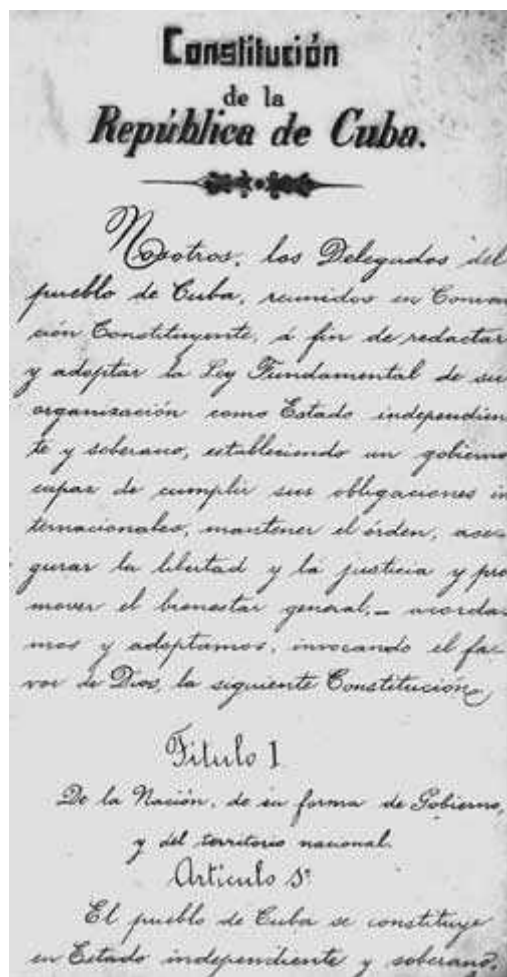 Constitución
de la
República de Cuba.
Nosotros, los Delegados del
pueblo de Cuba, reunidos en Conven
ción Constituyente, á fin de redactar
y adoptar la Ley Fundamental de su
organización como Estado independien
te y soberano, estableciendo un gobierno
capaz de cumplir sus obligaciones in
ternacionales, mantener el órden, ase-
gurar la libertad y la justicia y pro
mover el bienestar general,— acorda
mos y adoptamos, invocando el fa-
vor de Dios, la siguiente Constitución
Título I
De la Nación, de su forma de Gobierno,
y del territorio nacional.
Artículo 1º
El pueblo de Cuba se constituye
en Estado independiente y soberano,